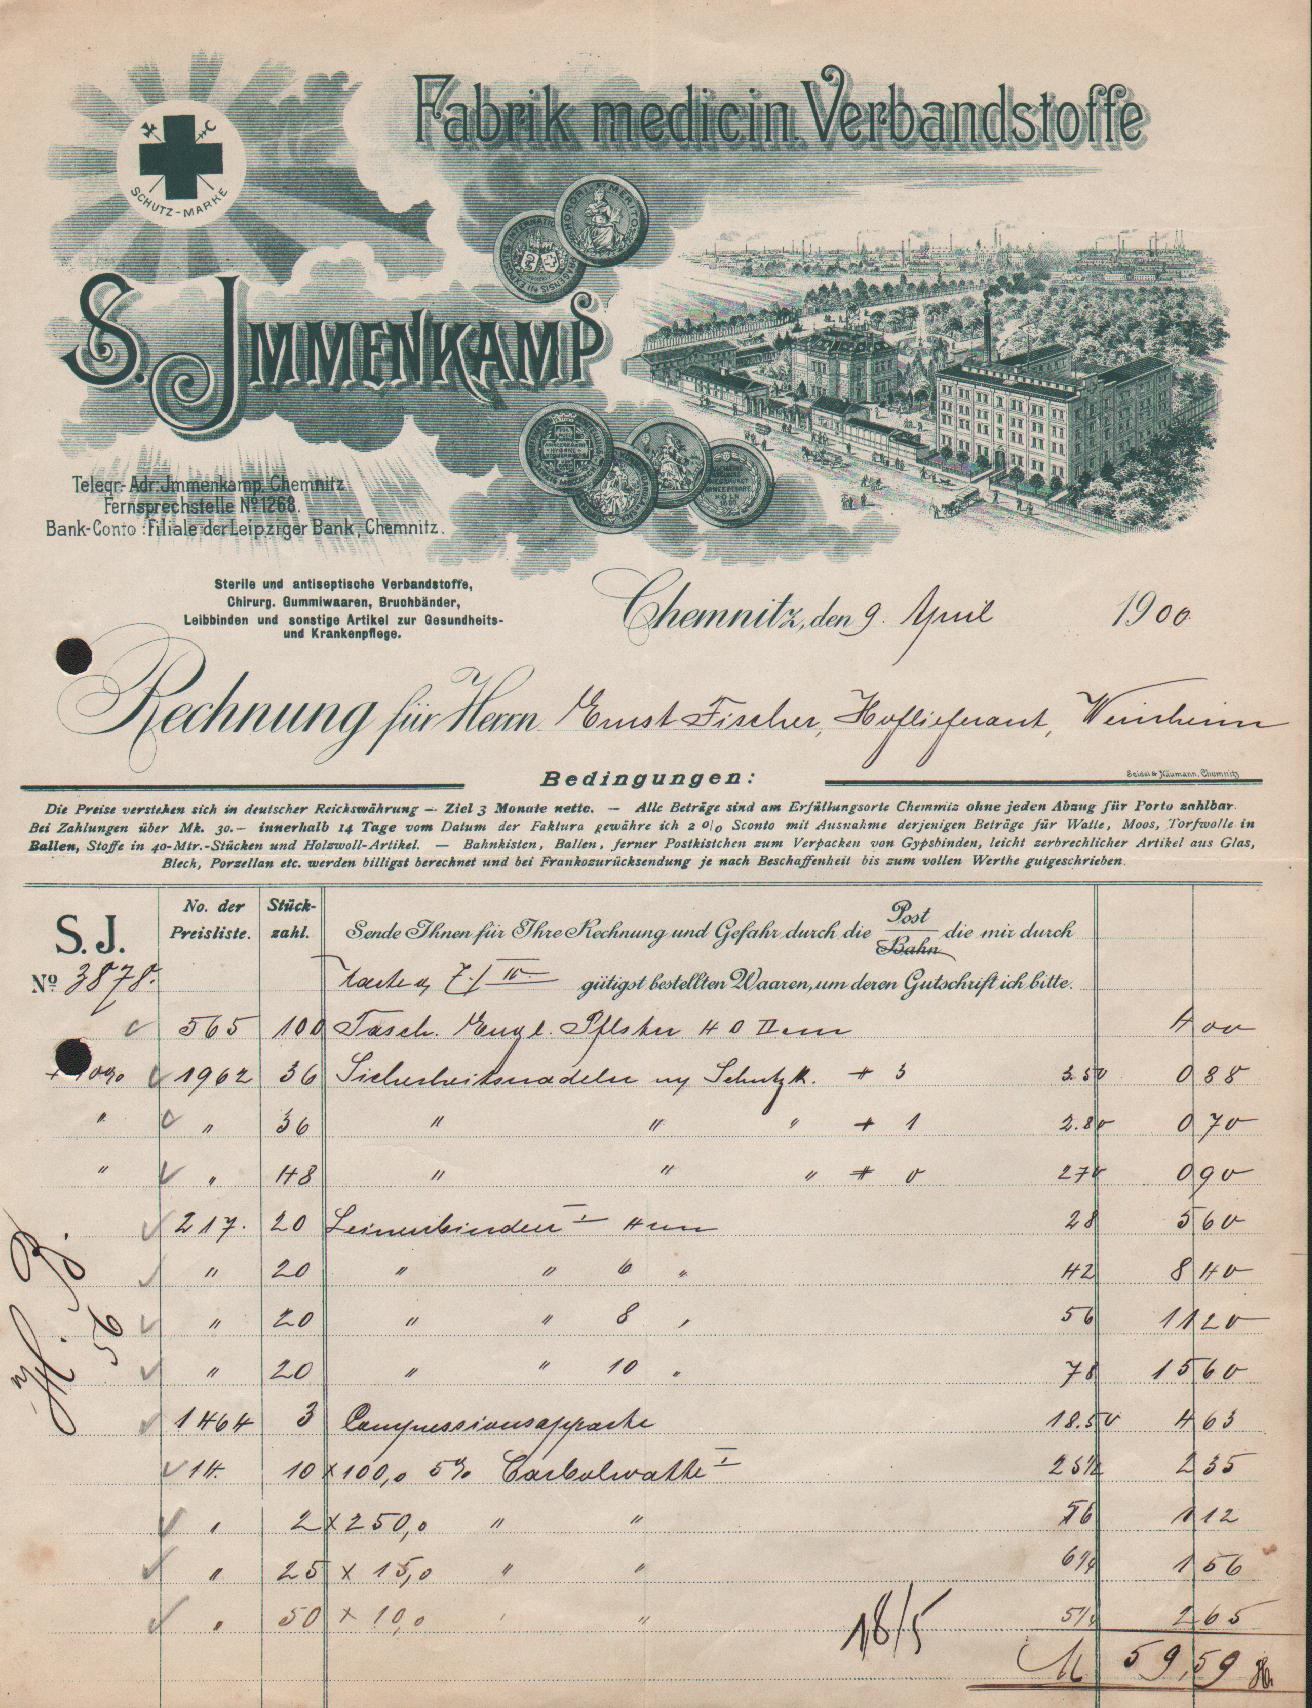 Fabrik medicin. Verbandstoffe
SCHUTZ-MARKE
S. Jmmenkamp
HONORI MERITO
Telegr.-Adr: Jmmenkamp, Chemnitz
Fernsprechstelle No 1268.
Bank-Conto: Filiale der Leipziger Bank, Chemnitz.
Sterile und antiseptische Verbandstoffe,
Chirurg. Gummiwaaren, Bruchbänder,
Leibbinden und sonstige Artikel zur Gesundheits-
und Krankenpflege.
Chemnitz, den 9. April 1900
Rechnung für Herrn Ernst Fischer, Hoflieferant, Weinheim
Bedingungen:
Seidel & Naumann, Chemnitz
Die Preise verstehen sich in deutscher Reichswährung — Ziel 3 Monate netto. — Alle Beträge sind am Erfüllungsorte Chemnitz ohne jeden Abzug für Porto zahlbar.
Bei Zahlungen über Mk. 30.— innerhalb 14 Tage vom Datum der Faktura gewähre ich 2 % Sconto mit Ausnahme derjenigen Beträge für Watte, Moos, Torfwolle in
Ballen, Stoffe in 40-Mtr.-Stücken und Holzwoll-Artikel. — Bahnkisten, Ballen, ferner Postkistchen zum Verpacken von Gypsbinden, leicht zerbrechlicher Artikel aus Glas,
Blech, Porzellan etc. werden billigst berechnet und bei Frankozurücksendung je nach Beschaffenheit bis zum vollen Werthe gutgeschrieben.
S. J. No. der Preisliste. Stück-zahl. Sende Ihnen für Ihre Rechnung und Gefahr durch die Post Bahn die mir durch
No 3878. Karte v. 7./IV. gütigst bestellten Waaren, um deren Gutschrift ich bitte.
565 100 Tasch. Engl. Pflster 4 0 II 4 00
+ 10% 1962 36 Sicherheitsnadeln m/ Schutzk. # 3 3.50 0 88
" " 36 " " " # 1 2.80 0 70
" " 48 " " " # 0 270 0 90
217. 20 Leinenbinden I 4 cm 28 5 60
" 20 " " 6 " 42 8 40
" 20 " " 8 " 56 11 20
" 20 " " 10 " 78 15 60
1464 3 Compressionsapparate 18.50 4 63
14. 10 x 100,0 5% Carbolwatte I 23½ 2 35
" 2 x 250,0 " " 56 1 12
" 25 x 15,0 " " 6¼ 1 56
" 50 x 10,0 " " 5¼ 2 65
18/5
M 59,59
56